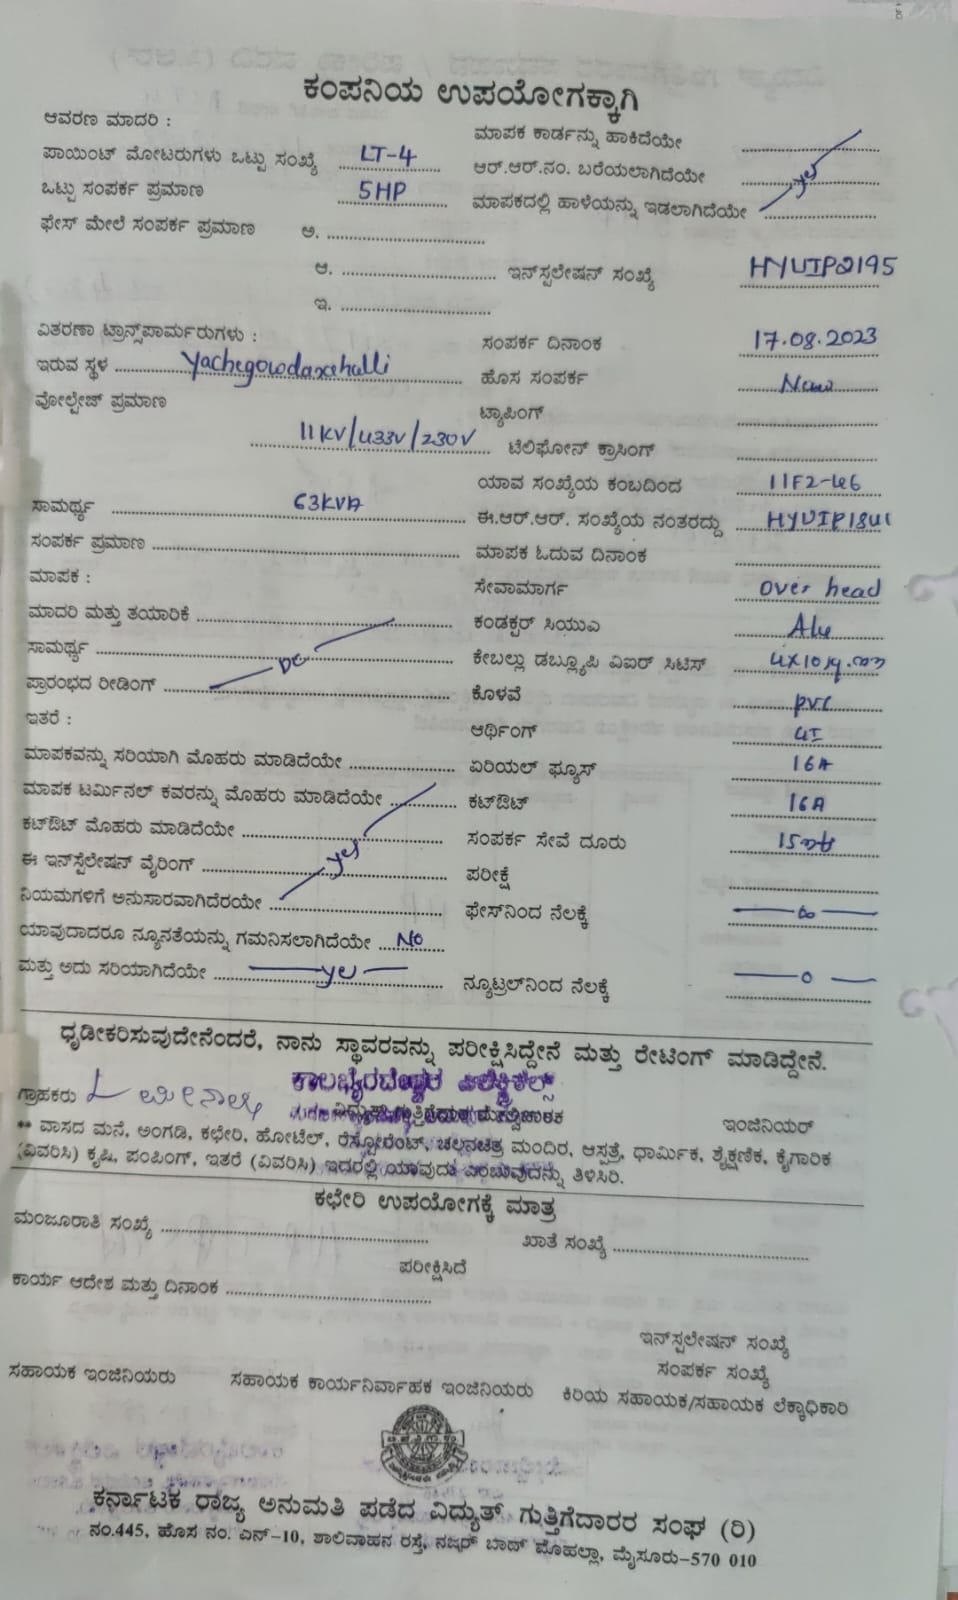 ಕಂಪನಿಯ ಉಪಯೋಗಕ್ಕಾಗಿ
ಆವರಣ ಮಾದರಿ :
ಮಾಪಕ ಕಾರ್ಡನ್ನು ಹಾಕಿದೆಯೇ
ಪಾಯಿಂಟ್ ಮೋಟರುಗಳು ಒಟ್ಟು ಸಂಖ್ಯೆ LT-4 ಆರ್.ಆರ್.ನಂ. ಬರೆಯಲಾಗಿದೆಯೇ yes
ಒಟ್ಟು ಸಂಪರ್ಕ ಪ್ರಮಾಣ 5HP ಮಾಪಕದಲ್ಲಿ ಹಾಳೆಯನ್ನು ಇಡಲಾಗಿದೆಯೇ
ಫೇಸ್ ಮೇಲೆ ಸಂಪರ್ಕ ಪ್ರಮಾಣ ಅ.
ಆ. ಇನ್‌ಸ್ಪಲೇಷನ್ ಸಂಖ್ಯೆ HYUIP2195
ಇ.
ವಿತರಣಾ ಟ್ರಾನ್ಸ್‌ಪಾರ್ಮರುಗಳು : ಸಂಪರ್ಕ ದಿನಾಂಕ 17.08.2023
ಇರುವ ಸ್ಥಳ ಹೊಸ ಸಂಪರ್ಕ New
ವೋಲ್ಟೇಜ್ ಪ್ರಮಾಣ ಟ್ಯಾಪಿಂಗ್
11KV/433V/230V ಟೆಲಿಫೋನ್ ಕ್ರಾಸಿಂಗ್
ಯಾವ ಸಂಖ್ಯೆಯ ಕಂಬದಿಂದ 11F2-46
ಸಾಮರ್ಥ್ಯ 63KVA ಈ.ಆರ್.ಆರ್. ಸಂಖ್ಯೆಯ ನಂತರದ್ದು
ಸಂಪರ್ಕ ಪ್ರಮಾಣ ಮಾಪಕ ಓದುವ ದಿನಾಂಕ
ಮಾಪಕ : ಸೇವಾಮಾರ್ಗ over head
ಮಾದರಿ ಮತ್ತು ತಯಾರಿಕೆ ಕಂಡಕ್ಟರ್ ಸಿಯುಎ
ಸಾಮರ್ಥ್ಯ ಕೇಬಲ್ಲು ಡಬ್ಲ್ಯೂಪಿ ಎಐರ್ ಸಿಟಿಸ್ 4x10sq.mm
ಪ್ರಾರಂಭದ ರೀಡಿಂಗ್ ಕೊಳವೆ pvc
ಇತರೆ : ಆರ್ಥಿಂಗ್
ಮಾಪಕವನ್ನು ಸರಿಯಾಗಿ ಮೊಹರು ಮಾಡಿದೆಯೇ ಏರಿಯಲ್ ಫ್ಯೂಸ್ 16A
ಮಾಪಕ ಟರ್ಮಿನಲ್ ಕವರನ್ನು ಮೊಹರು ಮಾಡಿದೆಯೇ ಕಟ್‌ಔಟ್ 16A
ಕಟ್‌ಔಟ್ ಮೊಹರು ಮಾಡಿದೆಯೇ ಸಂಪರ್ಕ ಸೇವೆ ದೂರು
ಈ ಇನ್‌ಸ್ಟೆಲೇಷನ್ ವೈರಿಂಗ್ yes ಪರೀಕ್ಷೆ
ನಿಯಮಗಳಿಗೆ ಅನುಸಾರವಾಗಿದೆರಯೇ ಫೇಸ್‌ನಿಂದ ನೆಲಕ್ಕೆ
ಯಾವುದಾದರೂ ನ್ಯೂನತೆಯನ್ನು ಗಮನಿಸಲಾಗಿದೆಯೇ No
ಮತ್ತು ಅದು ಸರಿಯಾಗಿದೆಯೇ yes ನ್ಯೂಟ್ರಲ್‌ನಿಂದ ನೆಲಕ್ಕೆ 0
ಧೃಡೀಕರಿಸುವುದೇನೆಂದರೆ, ನಾನು ಸ್ಥಾವರವನ್ನು ಪರೀಕ್ಷಿಸಿದ್ದೇನೆ ಮತ್ತು ರೇಟಿಂಗ್ ಮಾಡಿದ್ದೇನೆ.
ಗ್ರಾಹಕರು ವಿದ್ಯುತ್ ಗುತ್ತಿಗೆದಾರ ಇಂಜಿನಿಯರ್
** ವಾಸದ ಮನೆ, ಅಂಗಡಿ, ಕಛೇರಿ, ಹೋಟೆಲ್, ರೆಸ್ಟೋರೆಂಟ್, ಚಲನಚಿತ್ರ ಮಂದಿರ, ಆಸ್ಪತ್ರೆ, ಧಾರ್ಮಿಕ, ಶೈಕ್ಷಣಿಕ, ಕೈಗಾರಿಕ
(ವಿವರಿಸಿ) ಕೃಷಿ, ಪಂಪಿಂಗ್, ಇತರೆ (ವಿವರಿಸಿ) ಇದರಲ್ಲಿ ಯಾವುದು ಎಂಬುವುದನ್ನು ತಿಳಿಸಿರಿ.
ಕಛೇರಿ ಉಪಯೋಗಕ್ಕೆ ಮಾತ್ರ
ಮಂಜೂರಾತಿ ಸಂಖ್ಯೆ ಖಾತೆ ಸಂಖ್ಯೆ
ಪರೀಕ್ಷಿಸಿದೆ
ಕಾರ್ಯ ಆದೇಶ ಮತ್ತು ದಿನಾಂಕ
ಇನ್‌ಸ್ಪಲೇಷನ್ ಸಂಖ್ಯೆ
ಸಂಪರ್ಕ ಸಂಖ್ಯೆ
ಸಹಾಯಕ ಇಂಜಿನಿಯರು ಸಹಾಯಕ ಕಾರ್ಯನಿರ್ವಾಹಕ ಇಂಜಿನಿಯರು ಕಿರಿಯ ಸಹಾಯಕ/ಸಹಾಯಕ ಲೆಕ್ಕಾಧಿಕಾರಿ
ಕರ್ನಾಟಕ ರಾಜ್ಯ ಅನುಮತಿ ಪಡೆದ ವಿದ್ಯುತ್ ಗುತ್ತಿಗೆದಾರರ ಸಂಘ (ರಿ)
ನಂ.445, ಹೊಸ ನಂ. ಎನ್-10, ಶಾಲಿವಾಹನ ರಸ್ತೆ, ನಜ್ಹರ್ ಬಾದ್ ಮೊಹಲ್ಲಾ, ಮೈಸೂರು-570 010